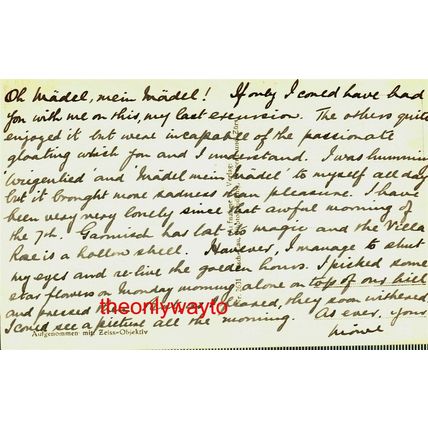 Oh Mädel, mein Mädel! If only I could have had
you with me on this, my last excursion. The others quite
enjoyed it but were incapable of the passionate
gloating which you and I understand. I was hummin
'Wiegenlied' and 'Mädel mein Mädel' to myself all day
but it brought more sadness than pleasure. I have
been very very lonely since that awful morning of
the 7th. Garmisch has lost its magic and the Villa
Rose is a hollow shell. However, I manage to shut
my eyes and re-live the golden hours. I picked some
star flowers on Monday morning alone on top of our hill
and pressed they soon withered
theonlywayto
I could see a picture all the morning. As ever, your
Aufgenommen mit Zeiss-Objektiv